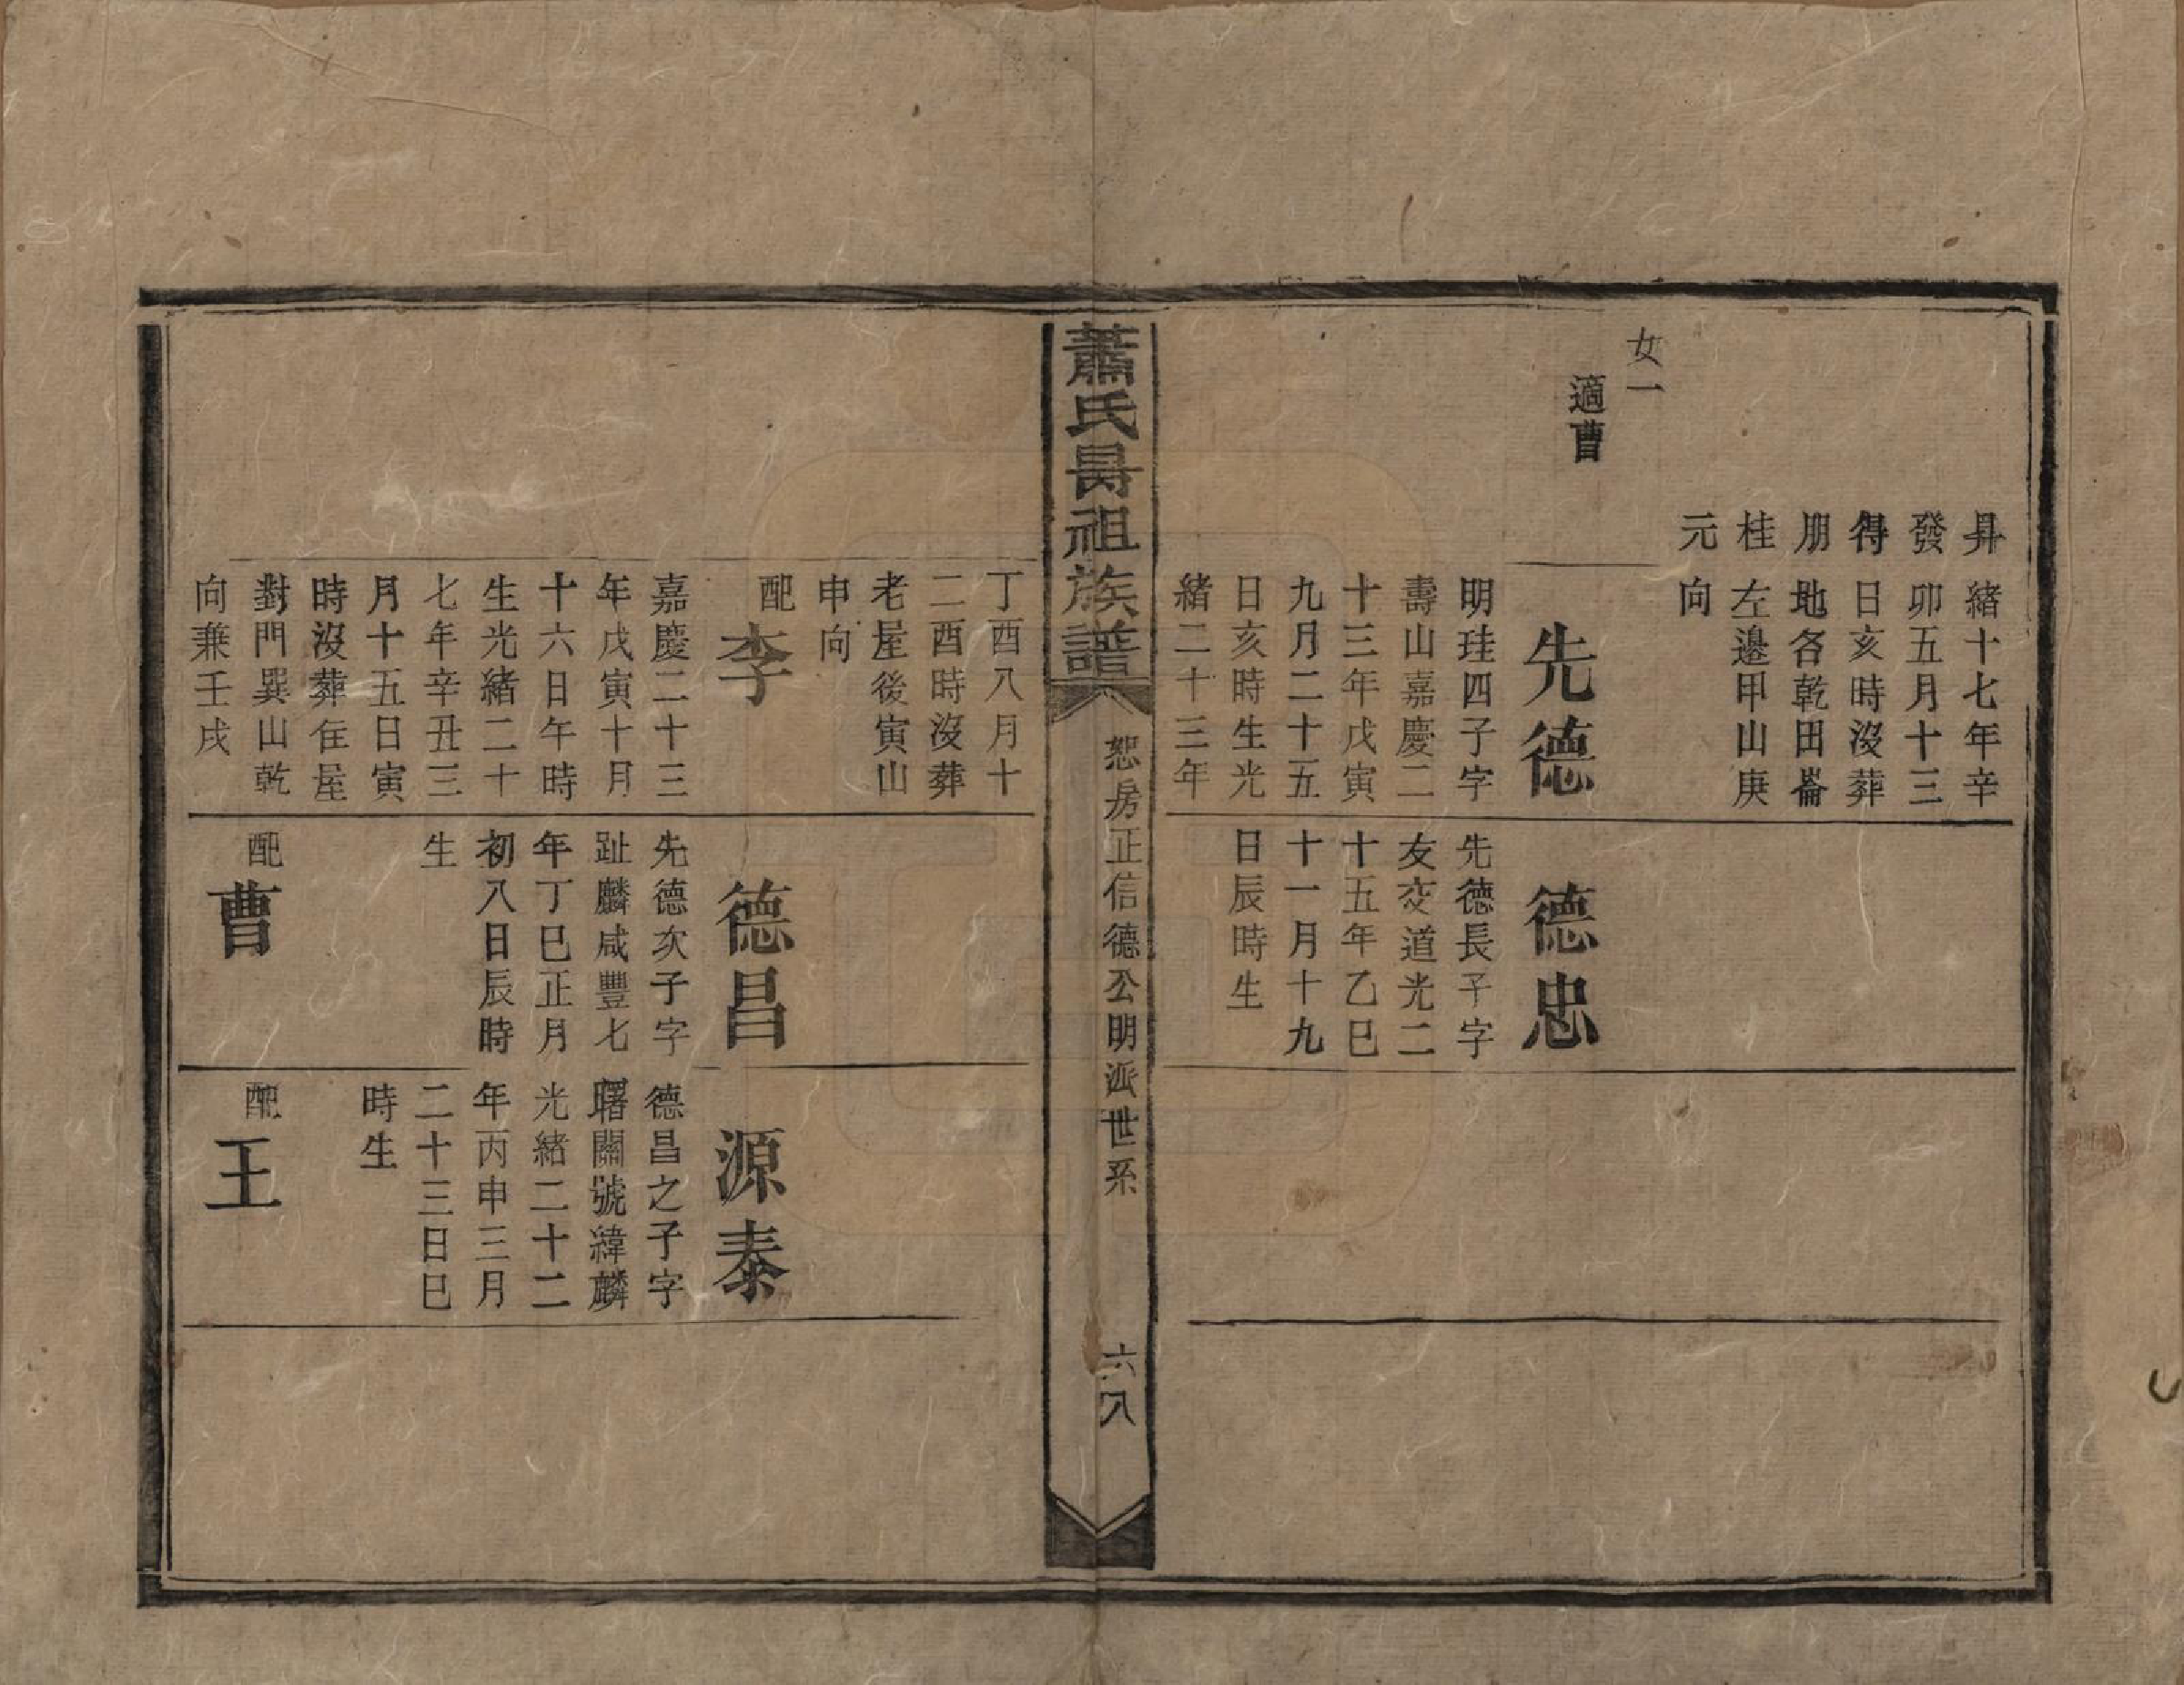 女一
適曹
昇
發
得
朋
桂
元
緒十七年辛
卯五月十三
日亥時沒葬
地各乾田崙
左邊甲山庚
向
先德
明珪四子字
壽山嘉慶二
十三年戊寅
九月二十五
日亥時生光
緒二十三年
德忠
先德長子字
友交道光二
十五年乙巳
十一月十九
日辰時生
蕭氏昺祖族譜
恕房正信德公明派世系
六八
丁酉八月十
二酉時沒葬
老屋後寅山
申向
配李
嘉慶二十三
年戊寅十月
十六日午時
生光緒二十
七年辛丑三
月十五日寅
時沒葬住屋
對門巽山乾
向兼壬戌
德昌
先德次子字
趾麟咸豐七
年丁巳正月
初八日辰時
生
配曹
源泰
德昌之子字
曙關號緯麟
光緒二十二
年丙申三月
二十三日巳
時生
配王